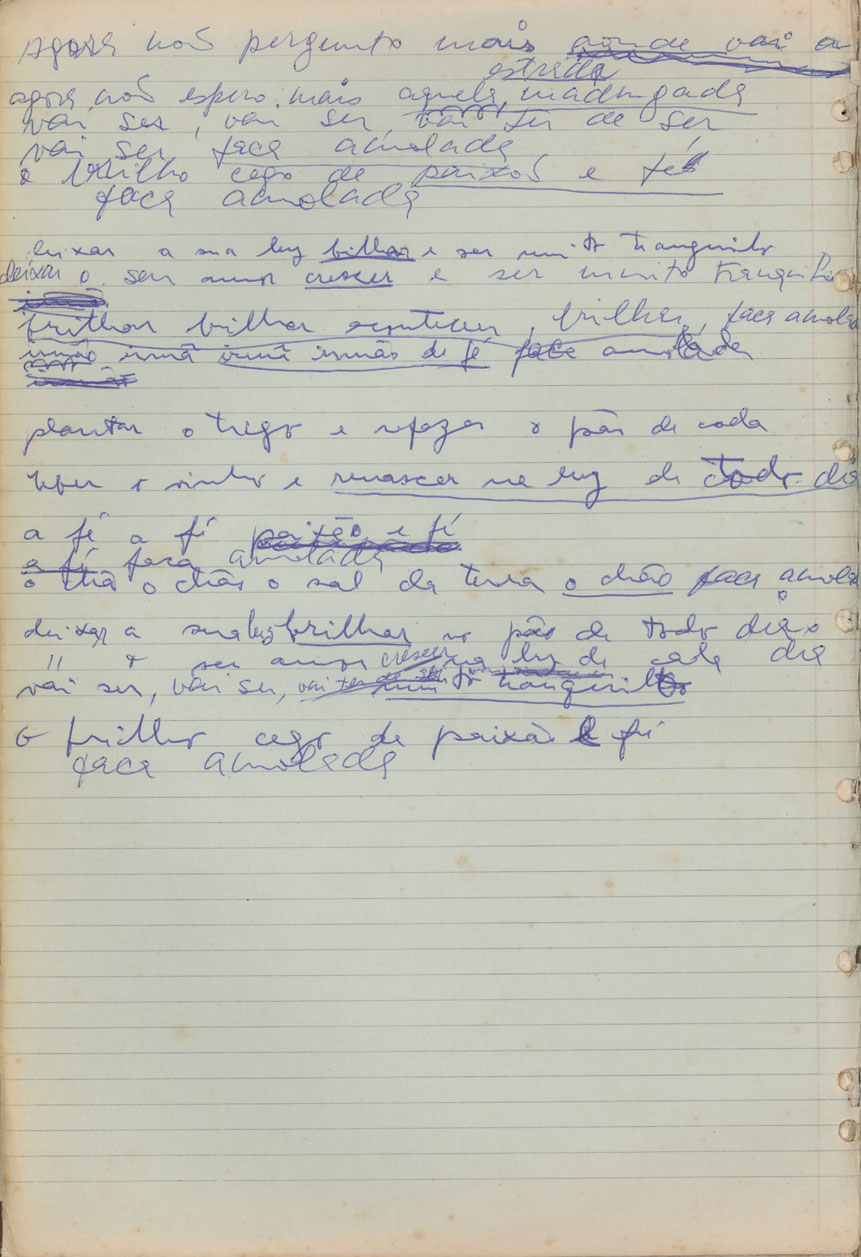 Agora não pergunto mais aonde vai a
estrada
agora não espero mais aquela madrugada
vai ser, vai ser, vai ter de ser
vai ser faca amolada
o brilho cego de paixão e fé
faca amolada
deixar a sua luz brilhar e ser muito tranquilo
deixar o seu amor crescer e ser muito tranquilo
brilhar brilhar acontecer, brilhar, faca amolada
irmão irmã irmã irmão de fé faca amolada
plantar o trigo e refazer o pão de cada
beber o vinho e renascer na luz de todo dia
a fé a fé paixão e fé
a fé faca amolada
o chão o chão o sal da terra o chão faca amolada
deixar a sua luz brilhar no pão de todo dia
" o seu amor crescer na luz de cada dia
vai ser, vai ser, vai ter de ser muito tranquilo
o brilho cego de paixão e fé
faca amolada